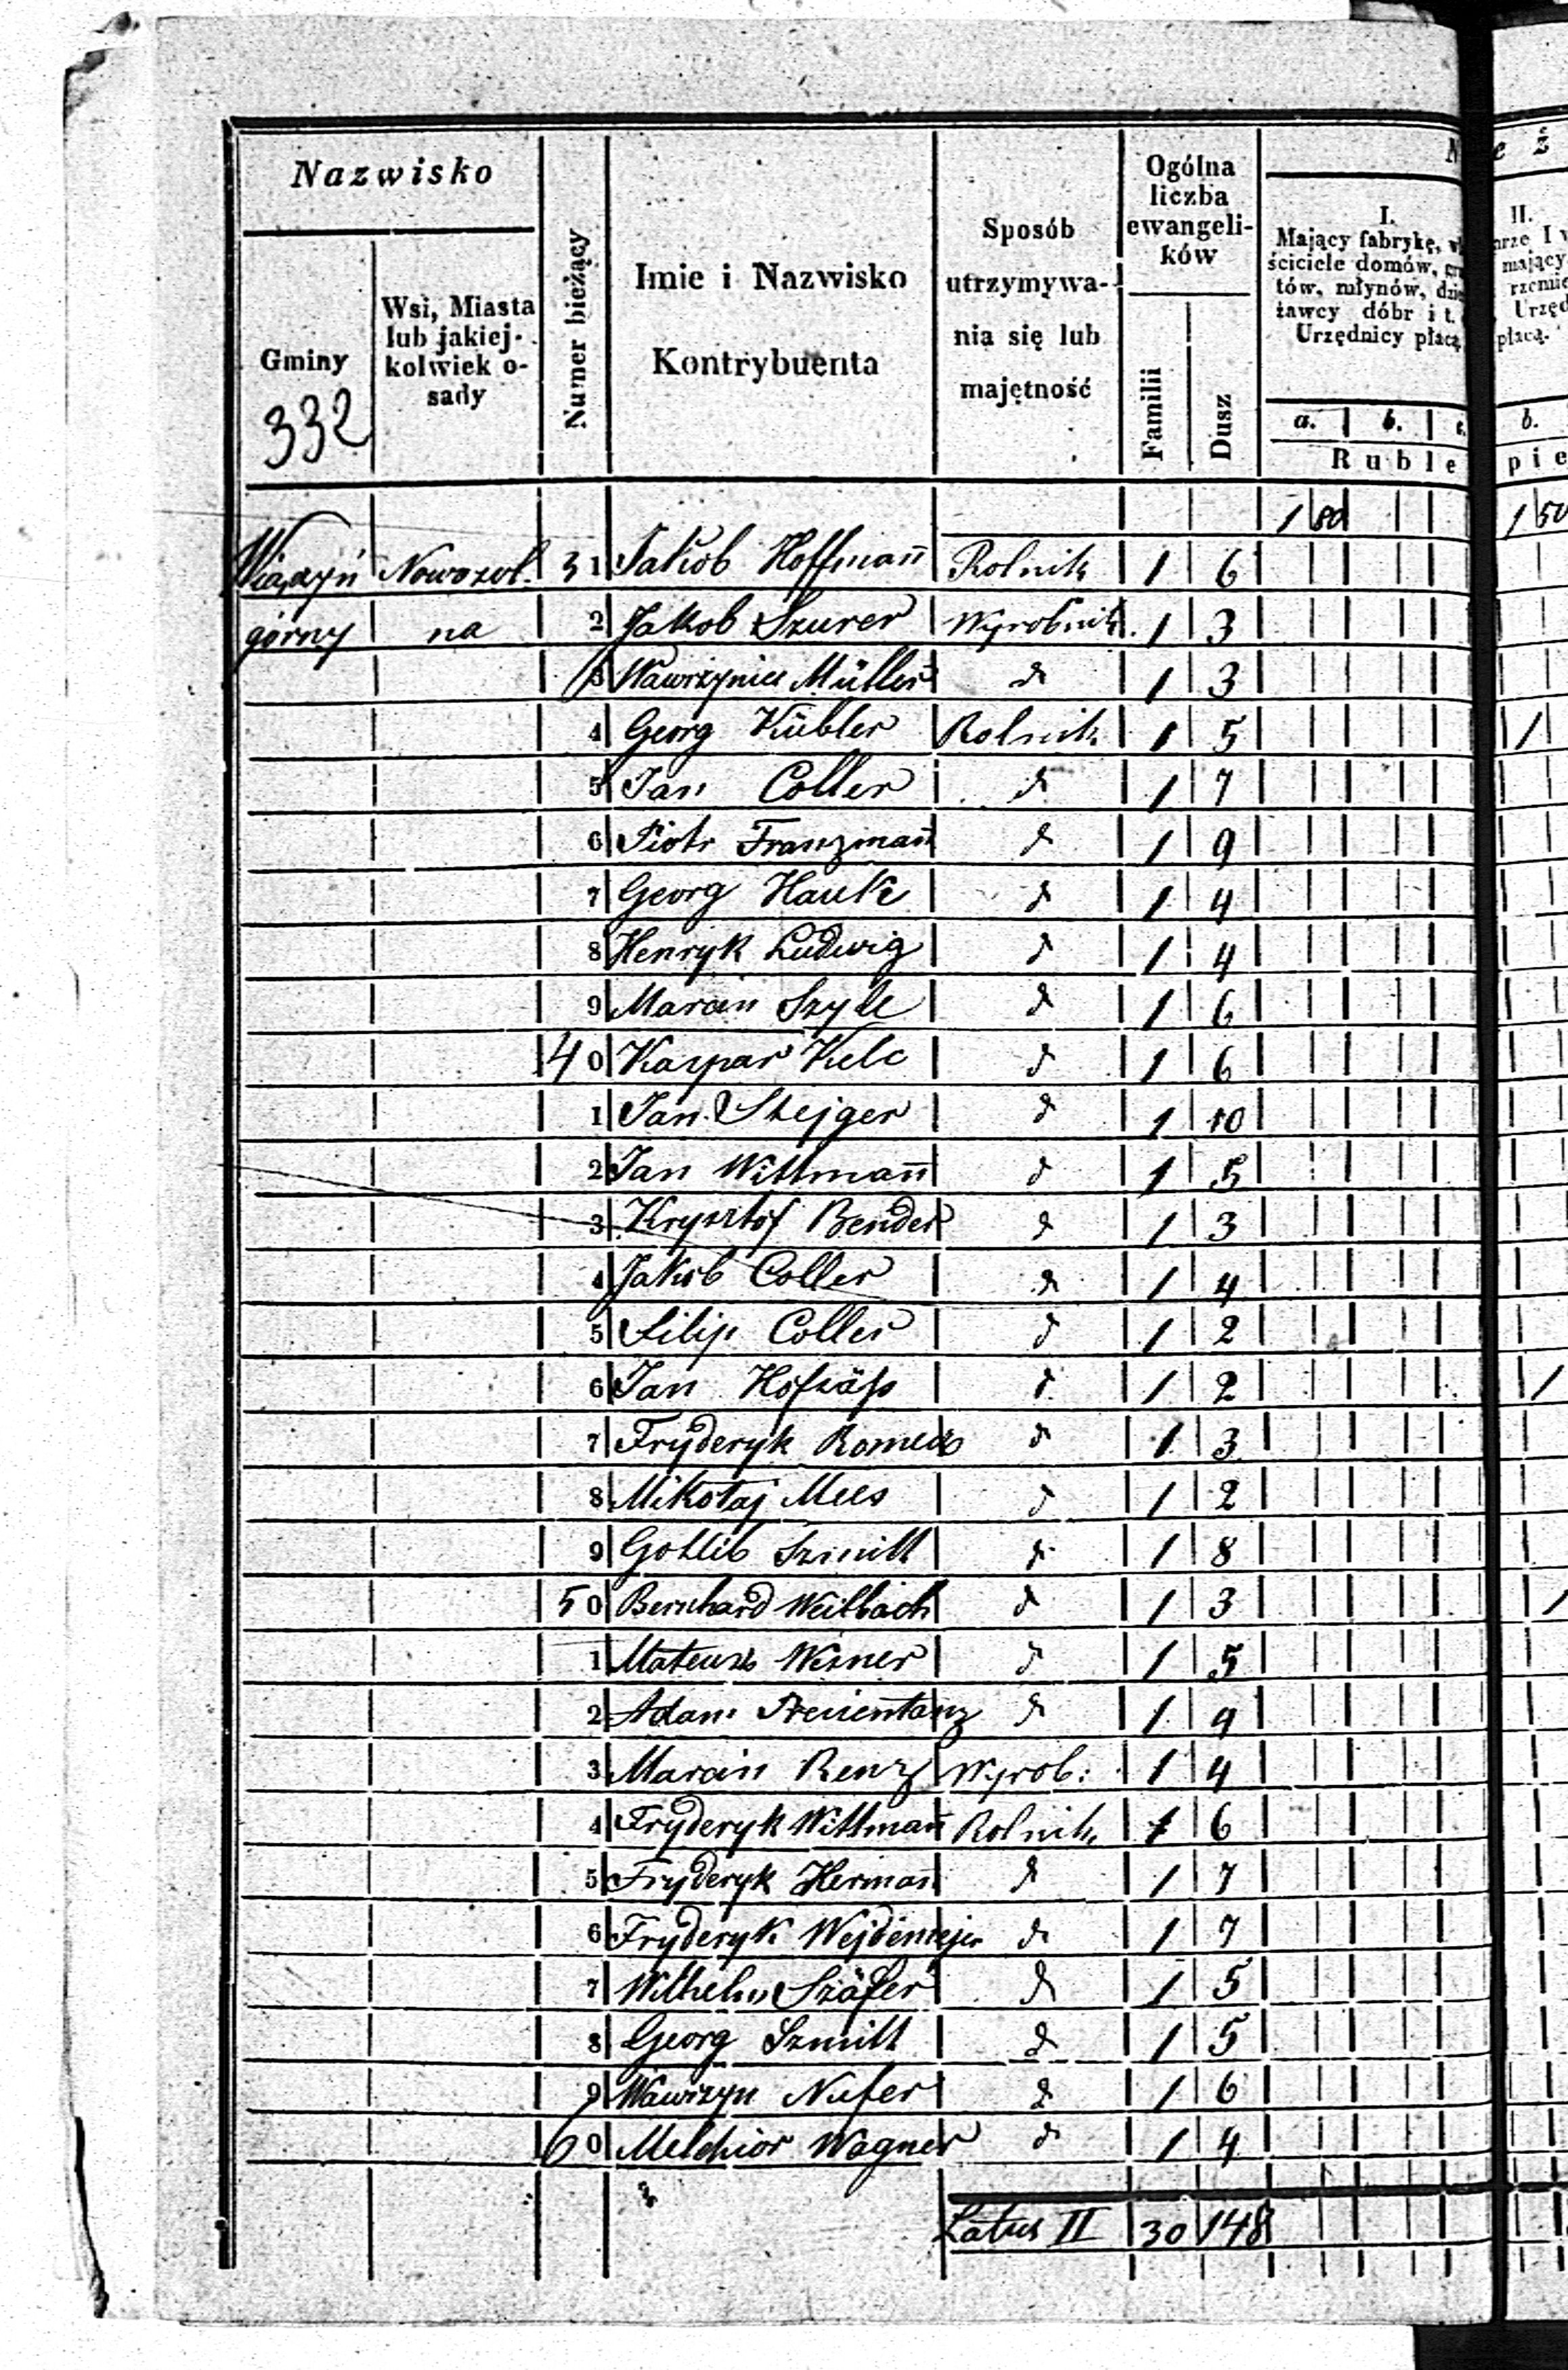 Nazwisko
Gminy
332
Wsi, Miasta
lub jakiej-
kolwiek o-
sady
Numer bieżący
Imie i Nazwisko
Kontrybuenta
Sposób
utrzymywa-
nia się lub
majętność
Ogólna
liczba
ewangeli-
ków
Familii
Dusz
N
I.
Mający fabrykę,
ściciele domów,
tów, młynów,
żawcy dóbr i t.
Urzędnicy płacą
a. b. c.
Ruble
e ź
II.
mający
płacą.
b.
pie
1 80 1 50
Wiączyń Nowosol. 31 Jakob Hoffmañ Rolnik 1 6
górny na 2 Jakob Szurer Wyrobnik 1 3
3 Wawrzyniec Müller d 1 3
4 Georg Kübler Rolnik 1 5 1
5 Jan Coller d 1 7
6 Piotr Franzmañ d 1 9
7 Georg Hauk d 1 4
8 Henryk Ludwig d 1 4
9 Marcin Szyle d 1 6
40 Kaspar Kelc d 1 6
1 Jan Stejger d 1 10
2 Jan Wittmañ d 1 5
3 Krysztof Bender d 1 3
4 Jakob Coller d 1 4
5 Filip Coller d 1 2
6 Jan Hofsäss d 1 2 1
7 Fryderyk d 1 3
8 Mikołaj Mees d 1 2
9 Gotlib Szmitt d 1 8
50 Bernhard Weilbach d 1 3 1
1 Mateusz Wesner d 1 5
2 Adam d 1 4
3 Marcin Renz Wyrob: 1 4
4 Fryderyk Wittmañ Rolnik 1 6
5 Fryderyk Hermañ d 1 7
6 Fryderyk Wejdemejer d 1 7
7 Wilhelm Szäfer d 1 5
8 Georg Szmitt d 1 5
9 Wawrzyn Nufer d 1 6
60 Melchior Wagner d 1 4
Latus II 30 148